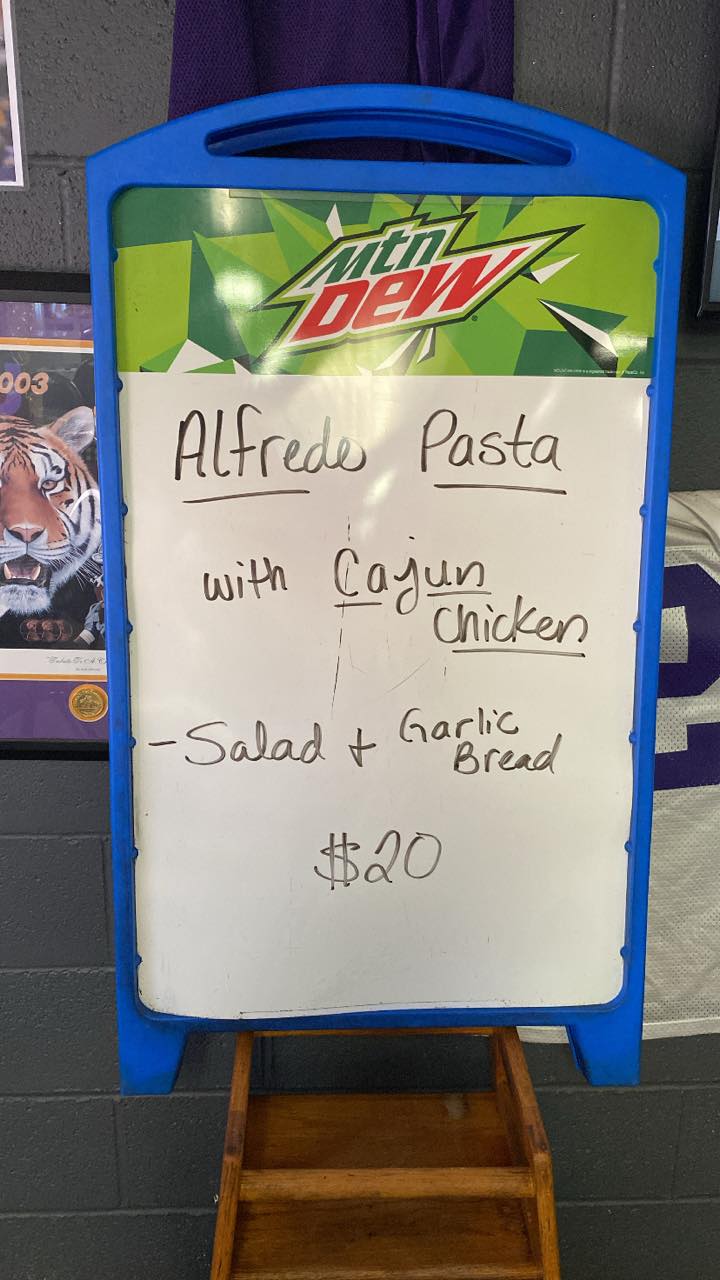 Mtn
Dew
Alfredo Pasta
with Cajun
Chicken
- Salad + Garlic
Bread
$20
003